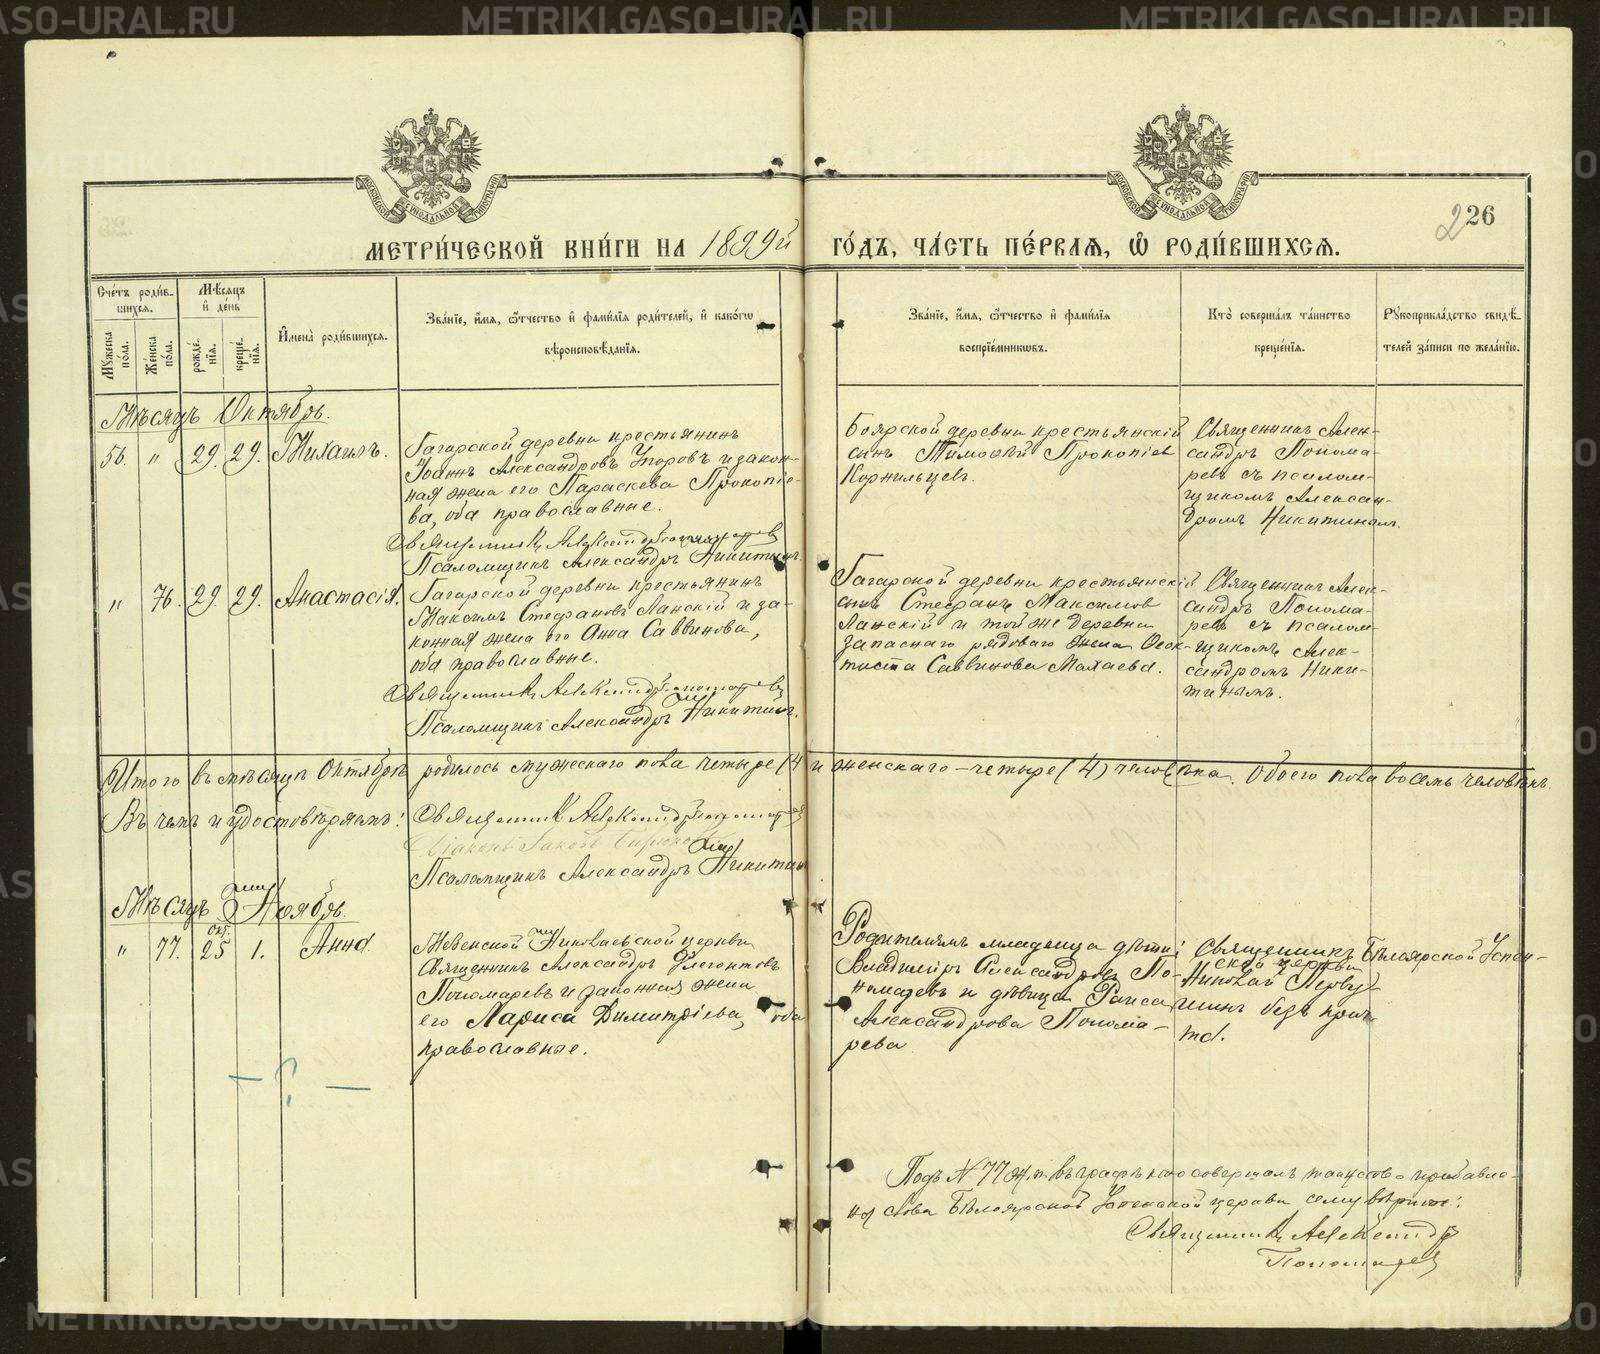 МЕТРИ́ЧЕСКОЙ КНИ́ГИ НА 1899й ГО́ДЪ, ЧА́СТЬ ПЕ́РВАЯ, Ѽ РОДИ́ВШИХСЯ.
226
Сче́тъ роди́в-
шихся.
Му́жеска
по́ла.
Же́нска
по́ла.
Мѣ́сяцъ
и де́нь
рожде́-
нїя.
креще́-
нїя.
Имена̀ роди́вшихся.
Зва́нїе, и́мя, ѻ́тчество и фами́лїя роди́телей, и како́гѡ
вѣроисповѣ́данїя.
Зва́нїе, и́мя, ѻ́тчество и фами́лїя
воспрїе́мникѡвъ.
Кто̀ соверша́лъ та́инство
креще́нїя.
Рукоприкла́дство свидѣ́-
телей за́писи по жела́нїю.
Мѣсяцъ Октябрь.
56. " 29. 29. Михаилъ.
Гагарской деревни крестьянинъ
Іоаннъ Александровъ Упоровъ и закон-
ная жена его Параскева Прокопіе-
ва, оба православные.
Священникъ Александръ Пономаревъ
Псаломщикъ Александръ Никитинъ.
Боярской деревни крестьянскій
сынъ Тимоѳей Прокопіев
Корнильцевъ.
Священникъ Алек-
сандръ Понома-
ревъ съ псалом-
щикомъ Алексан-
дромъ Никитинымъ.
" 76. 29. 29. Анастасія.
Гагарской деревни крестьянинъ
Максимъ Стефановъ Ланскій и за-
конная жена его Анна Саввинова,
оба православные.
Священникъ Александръ Пономаревъ
Псаломщикъ Александръ Никитинъ.
Гагарской деревни крестьянскій
сынъ Стефанъ Максимов
Ланскій и той же деревни
запаснаго рядоваго жена Ѳеок-
тиста Саввинова Махаева.
Священникъ Алек-
сандръ Понома-
ревъ съ псалом-
щикомъ Алек-
сандромъ Ники-
тинымъ.
Итого въ мѣсяцѣ Октябрѣ родилось мужескаго пола четыре (4) и женскаго – четыре (4) человѣка. Обоего пола восемь человѣкъ.
Въ чемъ и удостовѣряемъ: Священникъ Александръ Пономаревъ
Діаконъ Іаковъ
Псаломщикъ Александръ Никитинъ
Мѣсяцъ Ноябрь.
" 77. Окт. 25 1. Анна
Николаевской церкви
Священникъ Александръ Флегонтовъ
Пономаревъ и законная жена
его Лариса Димитріева, оба
православные.
Родителямъ младенца дѣти:
Владиміръ Александровъ По-
номаревъ и дѣвица Раиса
Александрова Понома-
рева
Священникъ Бѣлоярской Успен-
ской церкви
Николай Перву-
шинъ безъ прич-
та.
– ? –
Подъ № 77 ж.п. въ графѣ кто совершалъ таинство прибавле-
ны слова Бѣлоярской Успенской церкви сему вѣрить:
Священникъ Александръ
Пономаревъ